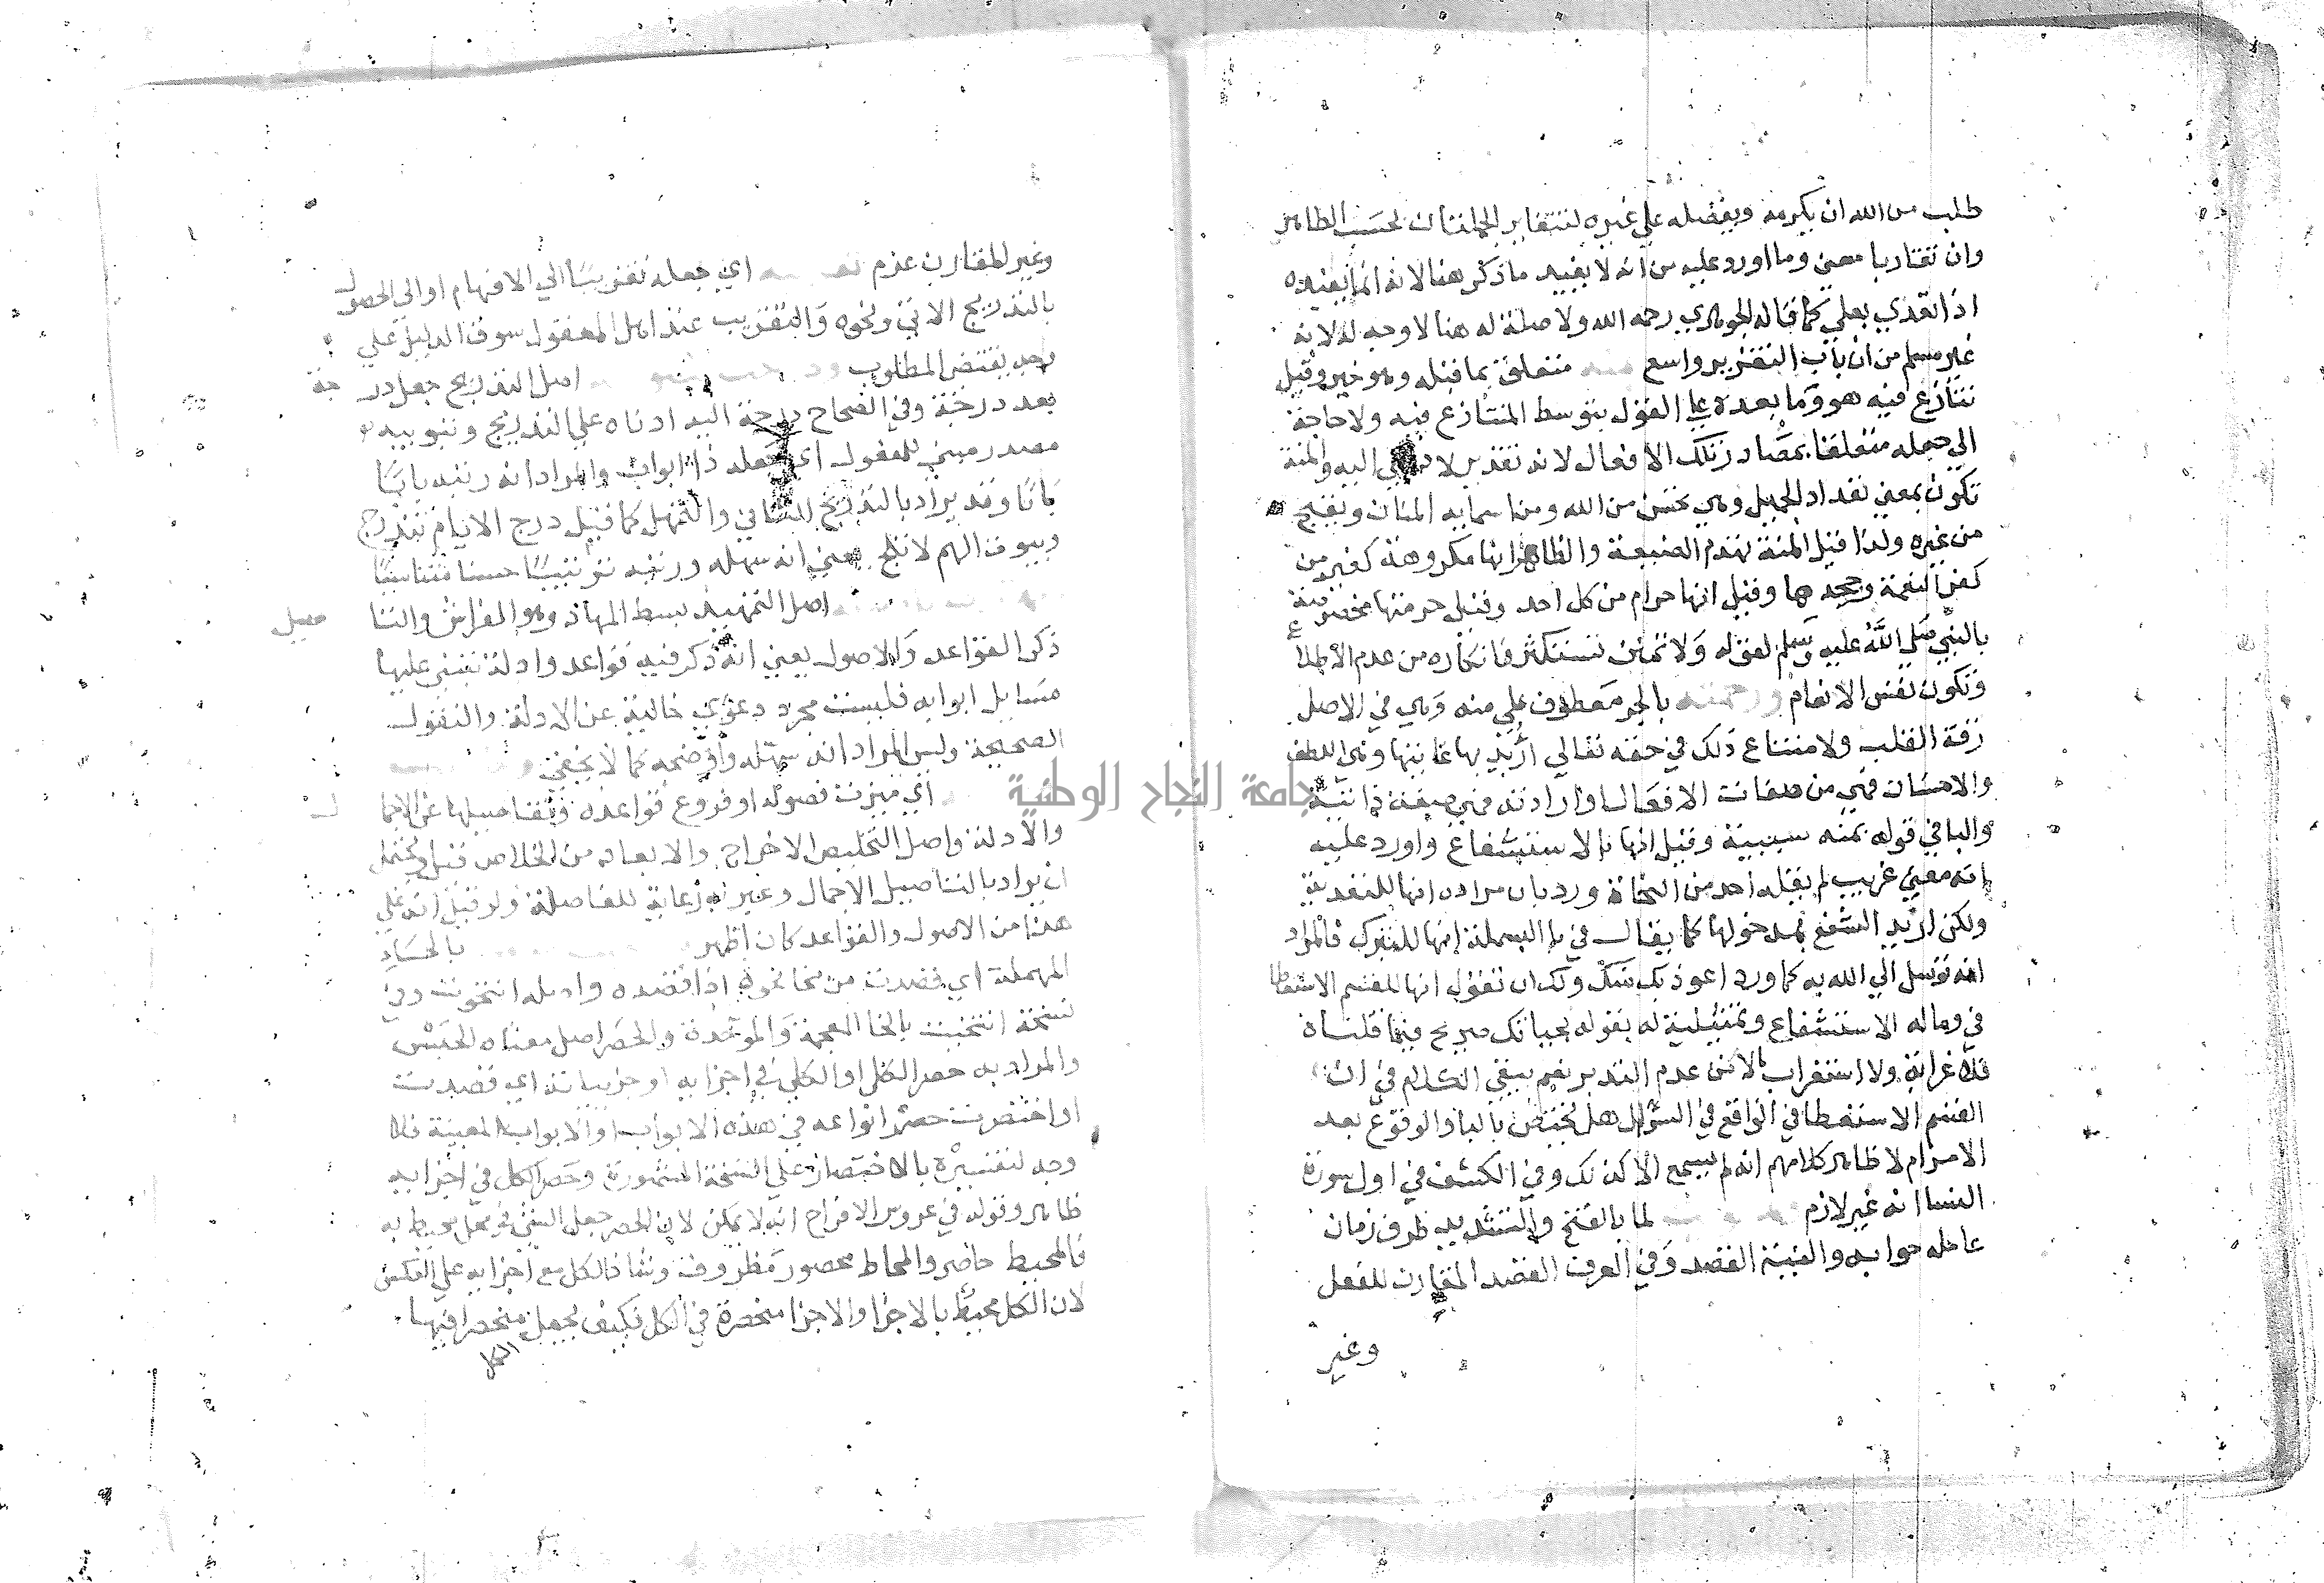 طلب من الله ان يكرمه ويفضله علي غيره لتتغاير الجملتان بحسب الظاهر
وان تقاربا معني وما اورد عليه من انه لا يفيد ما ذكر هنا لانه انما يفيده
اذا تعدي بعلي كما قاله الجوهري رحمه الله ولا صلة له هنا لا وجه له لانه
غير مسلم من ان باب التقدير واسع متعلق بما قبله وهو خير وقيل
تنازع فيه هو وما بعده علي القول بتوسط المتنازع فيه ولا حاجة
الي جعله متعلقا بمصادر تلك الافعال لانه تقدير لا اليه والمنة
تكون بمعني تعداد الجميل وهي تحسن من الله ومن اسمايه المنان ويقبح
من غيره ولذا قيل المنة تهدم الصنيعة والظاهر انها مكروهة كغير من
كفر النعمة وجحدها وقيل انها حرام من كل احد وقيل حرمتها مخصوصة
بالنبي صلي الله عليه وسلم لقوله ولا تمنن تستكثر فانكاره من عدم الاطلاع
وتكون لنفس الانعام ورحمته بالجر معطوف علي منه وهي في الاصل
رقة القلب ولامتناع ذلك في حقه تعالي اريد بها غايتها وهي اللطف
والاحسان فهي من صفات الافعال او ارادته فهي صفة ذاتية
والبا في قوله بمنه سببية وقيل انها بالاستشفاع واورد عليه
انه معني غريب لم يقله احد من النحاة ورد بان مراده انها للتعدية
ولكن اريد التشفع بمدخولها كما يقال في با البسملة انها للتبرك فالمراد
انه توسل الي الله به كما ورد اعوذ بك منك ولك ان تقول انها للقسم الاستعطا
في وماله الاستشفاع وتمثيلية له بقوله بحياتك صريح فيما قلناه
فلا غرابة ولا استغراب الا من عدم التدبر نعم يبقي الكلام في ان
القسم الاستعطافي الواقع في السؤال هل يختص بالبا والوقوع بعد
الامر ام لا ظاهر كلامهم انه لم يسمع الا كذلك وفي الكشف في اول سورة
النساء انه غير لازم لما بالفتح والتشديد ظرف زمان
عامله جوابه والنية القصد وفي العرف القصد المقارن للفعل
وغير
وغير المقارن عزم اي جعله تقريبا الي الافهام او الي الحصول
بالتدريج الاتي ونحوه والتقريب عند اهل المعقول سوق الدليل علي
وجه يقتضي المطلوب اصل التدريج جعل درجة
بعد درجة وفي الصحاح درجة اليه ادناه علي التدريج وتبويبه
مصدر مبني للمفعول اي جعله ذا ابواب والمراد انه رتبه بابا
بابا وقد يراد بالتدريج التاني والتمهل كما قيل درج الايام تندرج
وبيوت الهم لا تلج يعني انه سهله ورتبه ترتيبا حسنا متناسبا
اصل التمهيد بسط المهاد وهو الفراش والتاصيل
ذكر القواعد والاصول يعني انه ذكر فيه قواعد وادلة تبتني عليها
مسايل ابوابه فليست مجرد دعوي خالية عن الادلة والنقول
الصحيحة وليس المراد انه سهله واوضحه كما لا يخفي
اي ميزت فصوله او فروع قواعده وتفاصيلها عن الاجمال
والادلة واصل التخليص الاخراج والابعاد من الخلاص قيل ويحتمل
ان يراد بالتفاصيل الاجمال وعبر به رعاية للفاصلة ولو قيل انه علي
هذا من الاصول والقواعد كان اظهر بالحاء
المهملة اي قصدت من نحا نحوه اذا قصده واصله انتحوت وفي
نسخة انتخبت بالخا المعجمة والموحدة والحصر اصل معناه الحبس
والمراد به حصر الكل او الكلي في اجزايه او جزيياته اي قصدت
او اختصرت حصر انواعه في هذه الابواب او الابواب المعينة فلا
وجه لتفسيره بالاختصار علي النسخة المشهورة وحصر الكل في اجزايه
ظاهر وقوله في عروس الافراح انه لا يمكن لان الحصر جعل الشي في محل محيط به
فالمحيط حاصر والمحاط محصور مظروف وشان الكل مع اجزايه علي العكس
لان الكل محيط بالاجزا والاجزا منحصرة في الكل فكيف يجعل منحصرا فيها
الكل
جامعة النجاح الوطنية